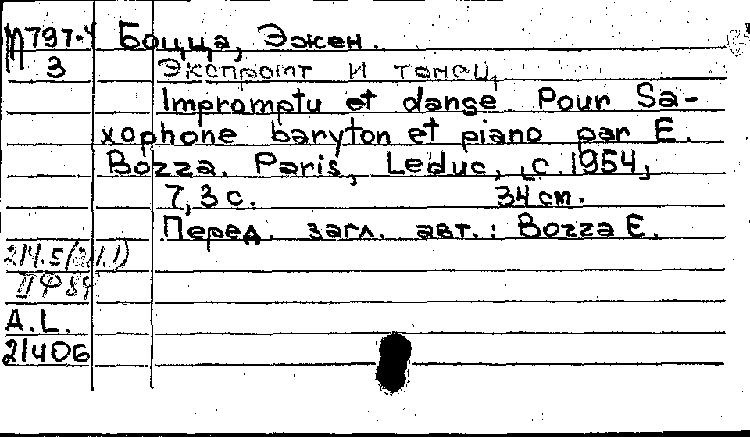 П797-4 Боцца, Эжен.
3 Экспромт и танец,
Impromptu et danse Pour Sa-
xophone baryton et piano par E.
Bozza. Paris, Leduc, „c. 1954„
7, 3 с. 34 cm.
Перед. загл. авт.: Bozza E.
214.5(2.1.1)
II Ф 84
A.L.
21406